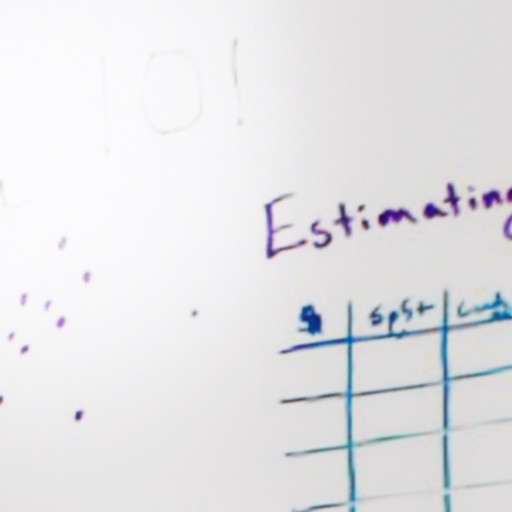 101
Estimating
$ spst